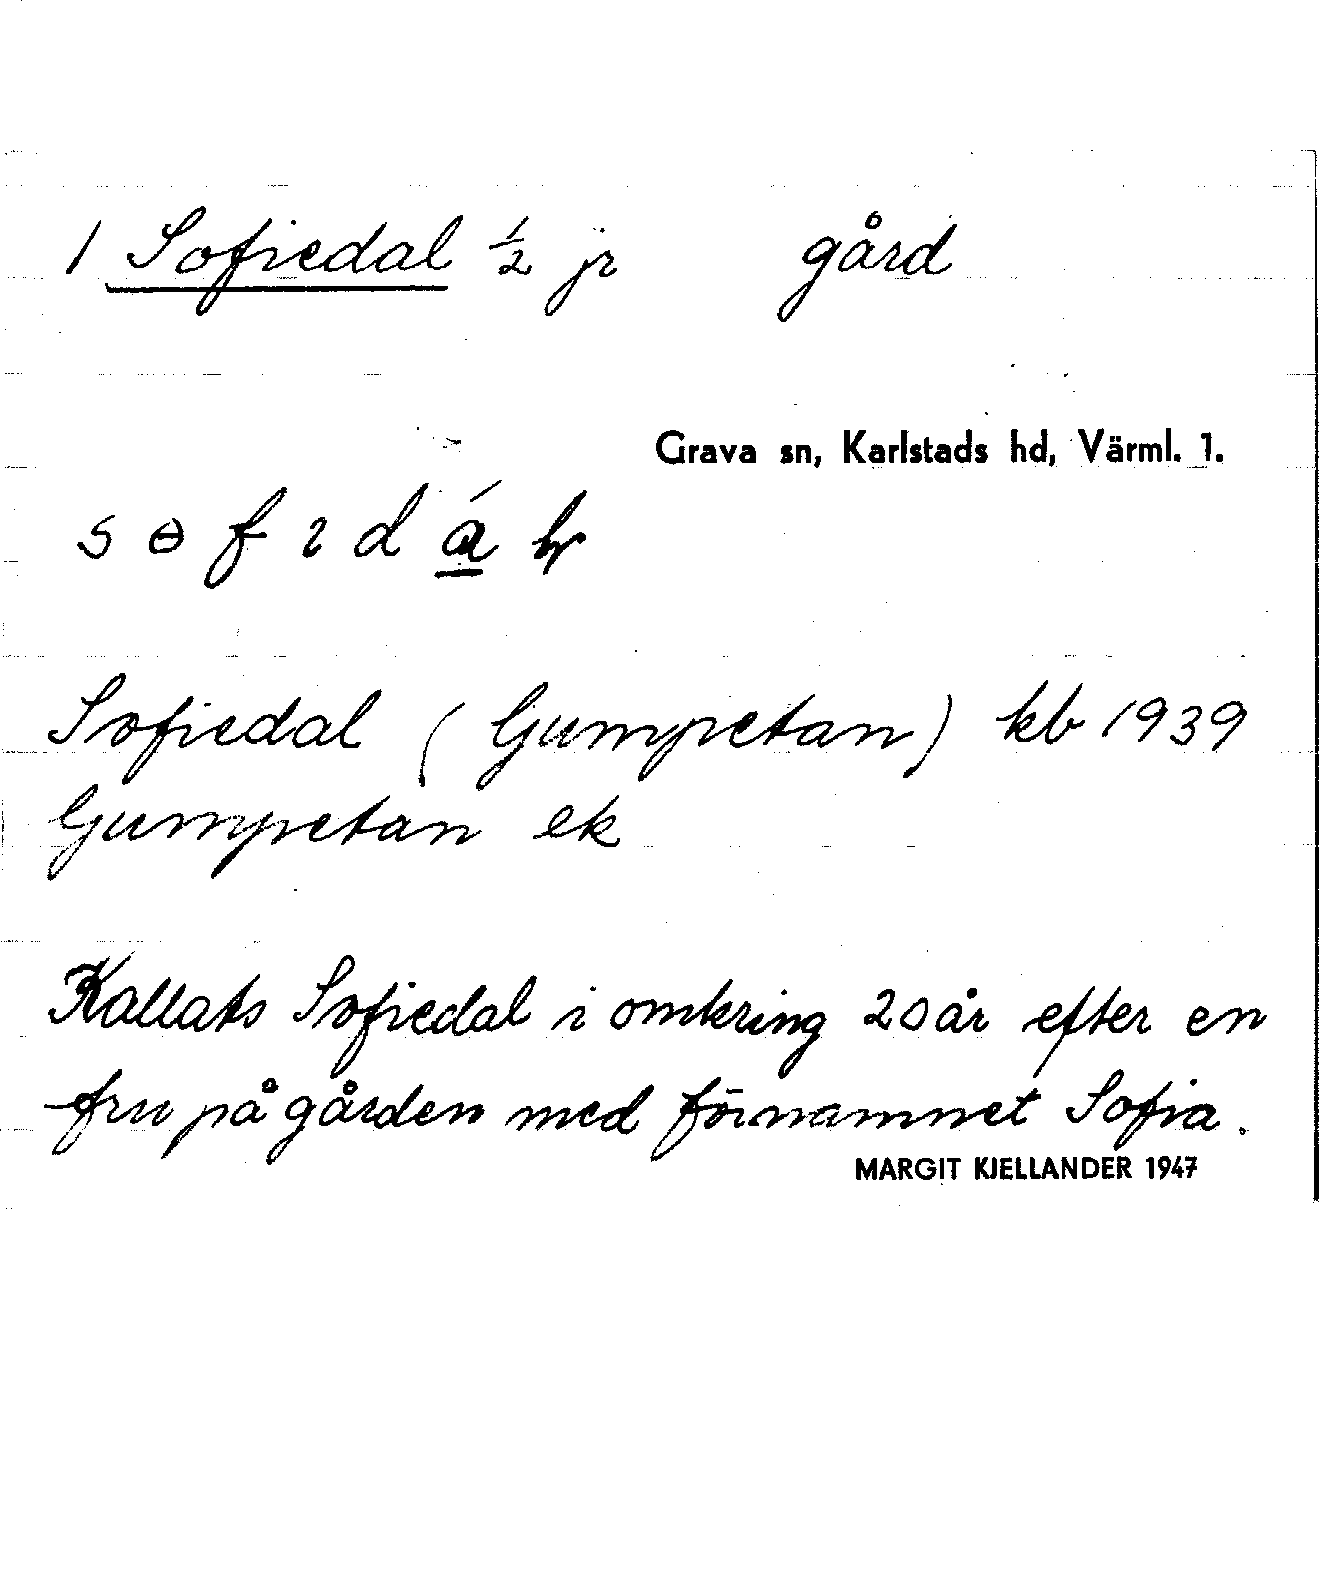 1 Sofiedal ½ jr gård
Grava sn, Karlstads hd, Värml. 1.
s ɵ f ɩ d á̲
Sofiedal (Gumpetan) kb 1939
Gumpetan ek
Kallats Sofiedal i omkring 20 år efter en
fru på gården med förnamnet Sofia.
MARGIT KJELLANDER 1947